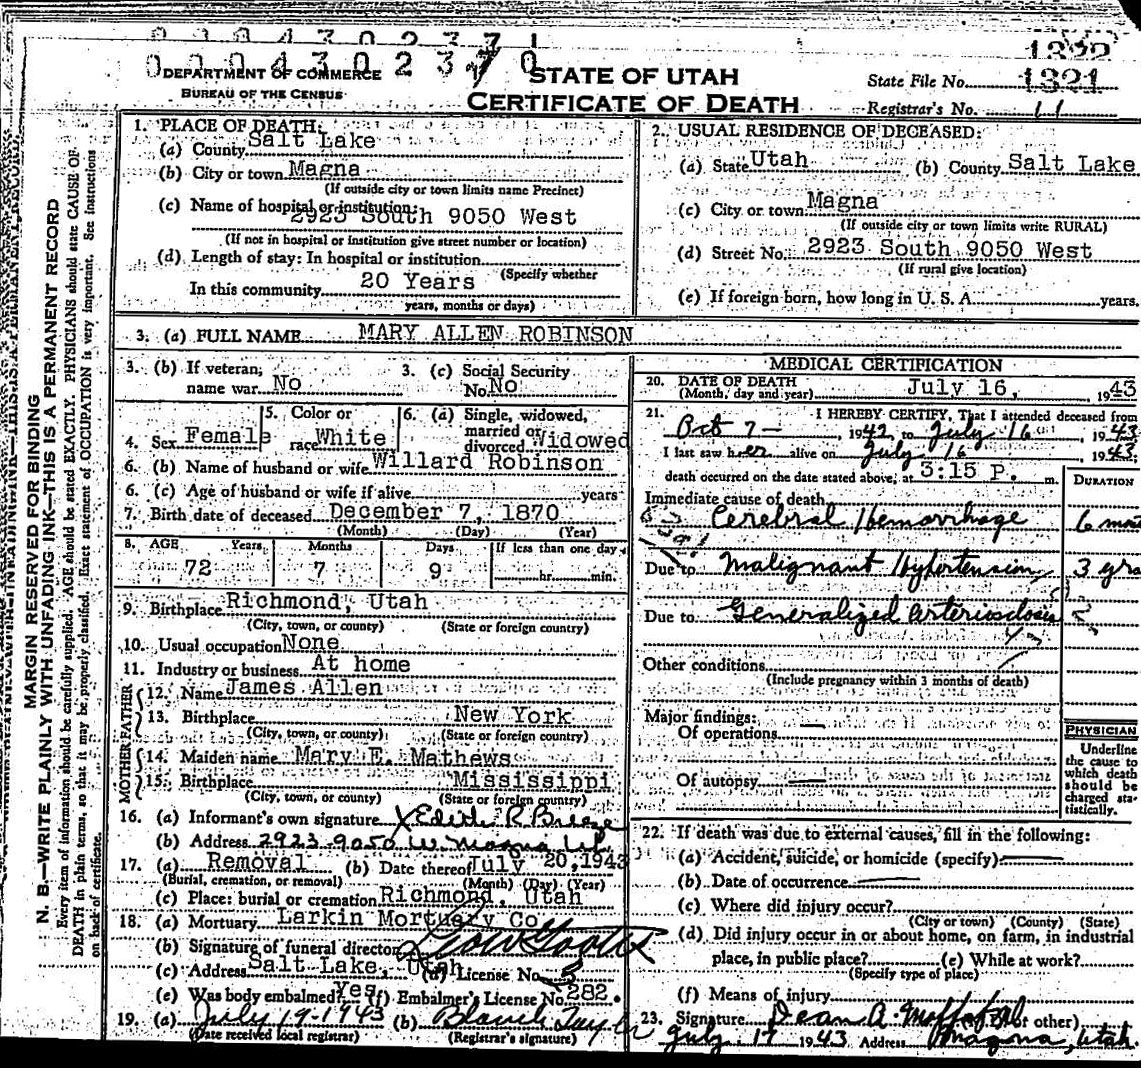 0 0 0 4 3 0 2 3 7 1
0 0 0 4 3 0 2 3 7 0
1322
DEPARTMENT OF COMMERCE
BUREAU OF THE CENSUS
STATE OF UTAH
CERTIFICATE OF DEATH
State File No. 1321
Registrar's No. 11
MARGIN RESERVED FOR BINDING
N. B.—WRITE PLAINLY WITH UNFADING INK—THIS IS A PERMANENT RECORD
Every item of information should be carefully supplied. AGE should be stated EXACTLY. PHYSICIANS should state CAUSE OF
DEATH in plain terms, so that it may be properly classified. Exact statement of OCCUPATION is very important. See Instructions
on back of certificate.
1. PLACE OF DEATH:
(a) County Salt Lake
(b) City or town Magna
(If outside city or town limits name Precinct)
(c) Name of hospital or institution:
2923 South 9050 West
(If not in hospital or institution give street number or location)
(d) Length of stay: In hospital or institution
(Specify whether
In this community 20 Years
years, months or days)
2. USUAL RESIDENCE OF DECEASED:
(a) State Utah (b) County Salt Lake
(c) City or town Magna
(If outside city or town limits write RURAL)
(d) Street No. 2923 South 9050 West
(If rural give location)
(e) If foreign born, how long in U. S. A. years.
3. (a) FULL NAME MARY ALLEN ROBINSON
3. (b) If veteran, name war No
3. (c) Social Security No. No
4. Sex Female
5. Color or race White
6. (a) Single, widowed, married or divorced Widowed
6. (b) Name of husband or wife Willard Robinson
6. (c) Age of husband or wife if alive years
7. Birth date of deceased December 7, 1870
(Month) (Day) (Year)
8. AGE Years Months Days If less than one day
72 7 9 hr. min.
9. Birthplace Richmond, Utah
(City, town, or county) (State or foreign country)
10. Usual occupation None
11. Industry or business At home
FATHER
12. Name James Allen
13. Birthplace New York
(City, town, or county) (State or foreign country)
MOTHER
14. Maiden name Mary E. Mathews
15. Birthplace Mississippi
(City, town, or county) (State or foreign country)
16. (a) Informant's own signature X Edith R Breeze
(b) Address 2923-9050 W. Magna Ut.
17. (a) Removal (b) Date thereof July 20, 1943
(Burial, cremation, or removal) (Month) (Day) (Year)
(c) Place: burial or cremation Richmond, Utah
18. (a) Mortuary Larkin Mortuary Co
(b) Signature of funeral director
(c) Address Salt Lake, Utah (d) License No. 5
(e) Was body embalmed? Yes (f) Embalmer's License No. 282.
19. (a) July 19-1943 (b) Blanch Taylor
(Date received local registrar) (Registrar's signature)
MEDICAL CERTIFICATION
20. DATE OF DEATH July 16, 1943
(Month, day and year)
21. I HEREBY CERTIFY, That I attended deceased from
Oct 7- 1942 to July 16 1943
I last saw her alive on July 16 1943;
death occurred on the date stated above, at 3:15 P. m.
DURATION
Immediate cause of death
Cerebral Hemorrhage 6 mos
Due to Malignant Hypertension 3 yrs
Due to Generalized Arteriosclosis
Other conditions
(Include pregnancy within 3 months of death)
Major findings:
Of operations
Of autopsy
PHYSICIAN
Underline
the cause to
which death
should be
charged sta-
tistically.
22. If death was due to external causes, fill in the following:
(a) Accident, suicide, or homicide (specify)
(b) Date of occurrence
(c) Where did injury occur?
(City or town) (County) (State)
(d) Did injury occur in or about home, on farm, in industrial
place, in public place? (e) While at work?
(Specify type of place)
(f) Means of injury
23. Signature Dean A. Moffat (M.D. or other)
July 17 1943 Address Magna, Utah.